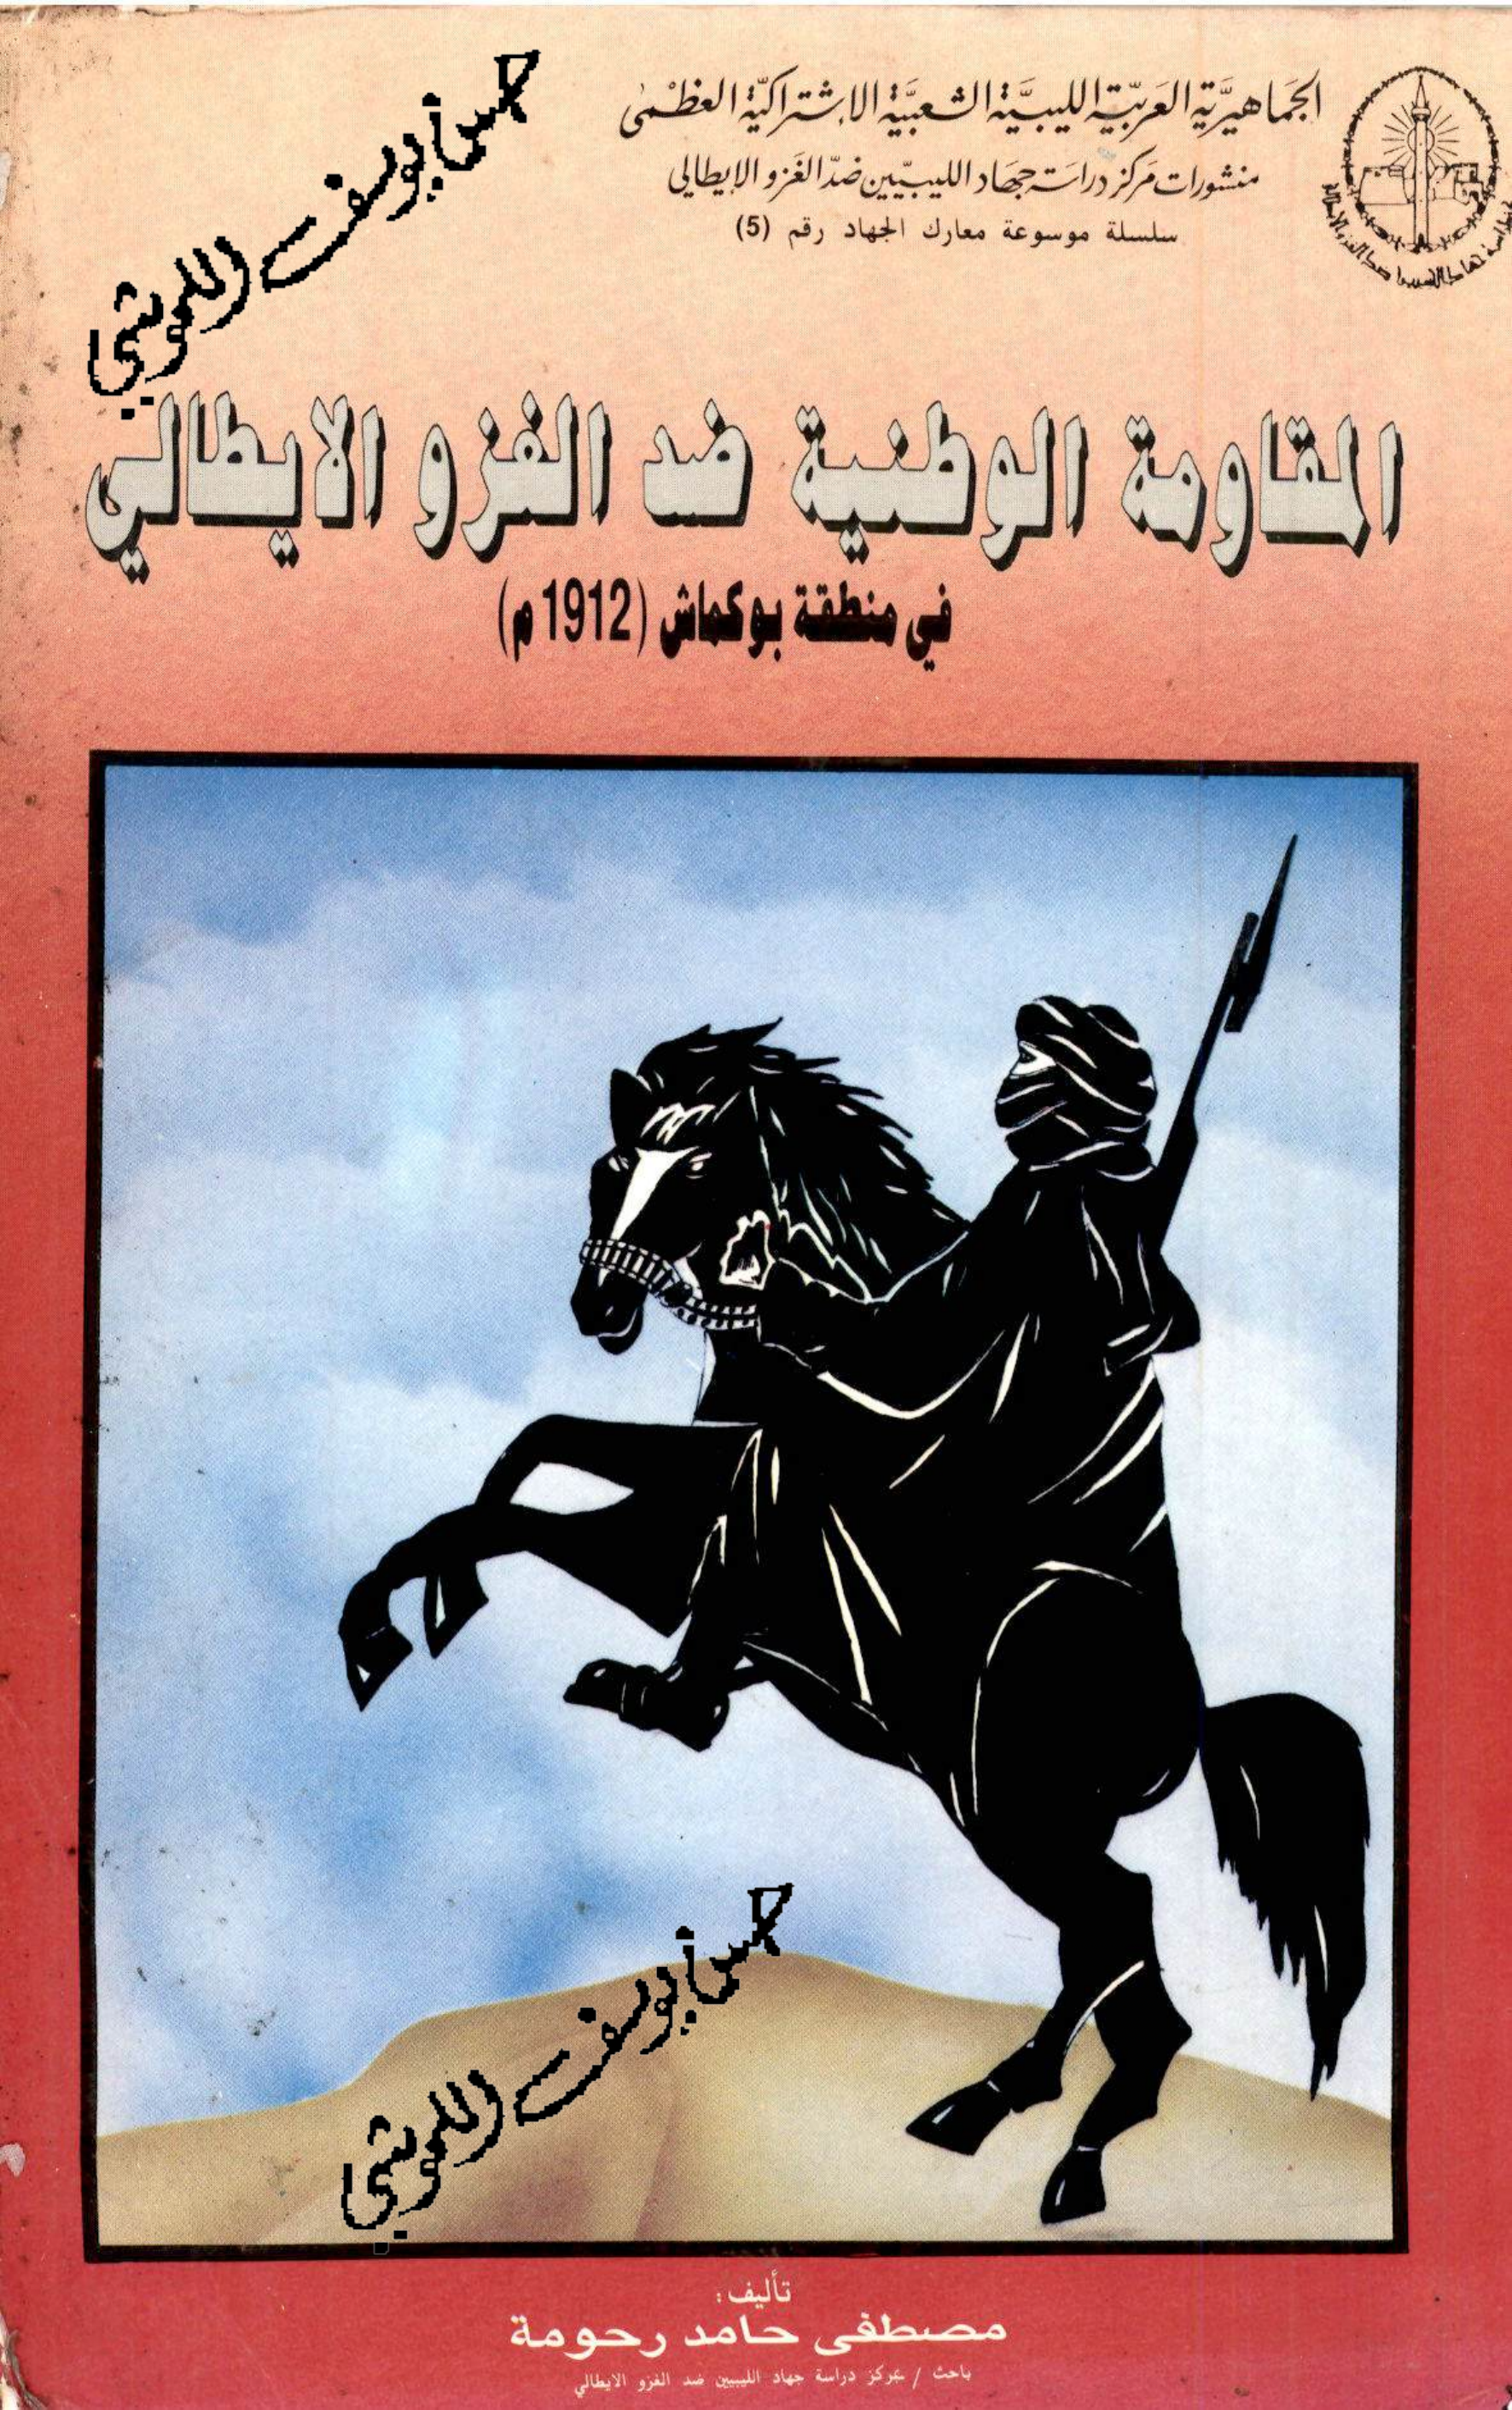 الجماهيريّة العربيّة الليبيّة الشعبيّة الاشتراكيّة العظمى
منشورات مركز دراسة جهاد الليبيّين ضدّ الغزو الإيطالي
سلسلة موسوعة معارك الجهاد رقم (5)
حسن يوسف اللموشي
المقاومة الوطنية ضد الغزو الايطالي
في منطقة بوكماش (1912 م)
حسن يوسف اللموشي
تأليف:
مصطفى حامد رحومة
باحث / بمركز دراسة جهاد الليبيين ضد الغزو الايطالي